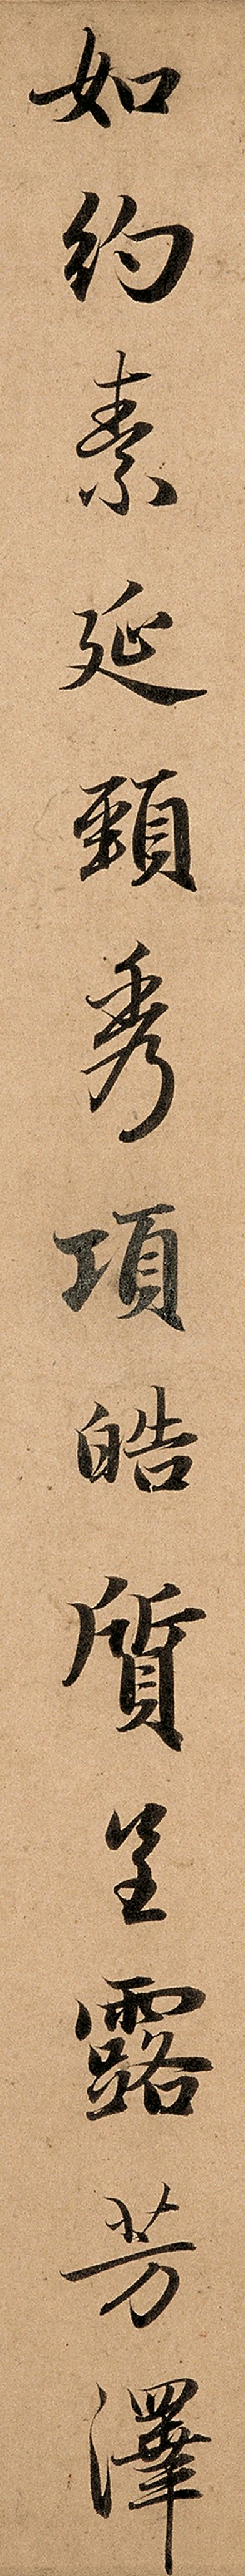 如約素延頸秀項皓質呈露芳澤